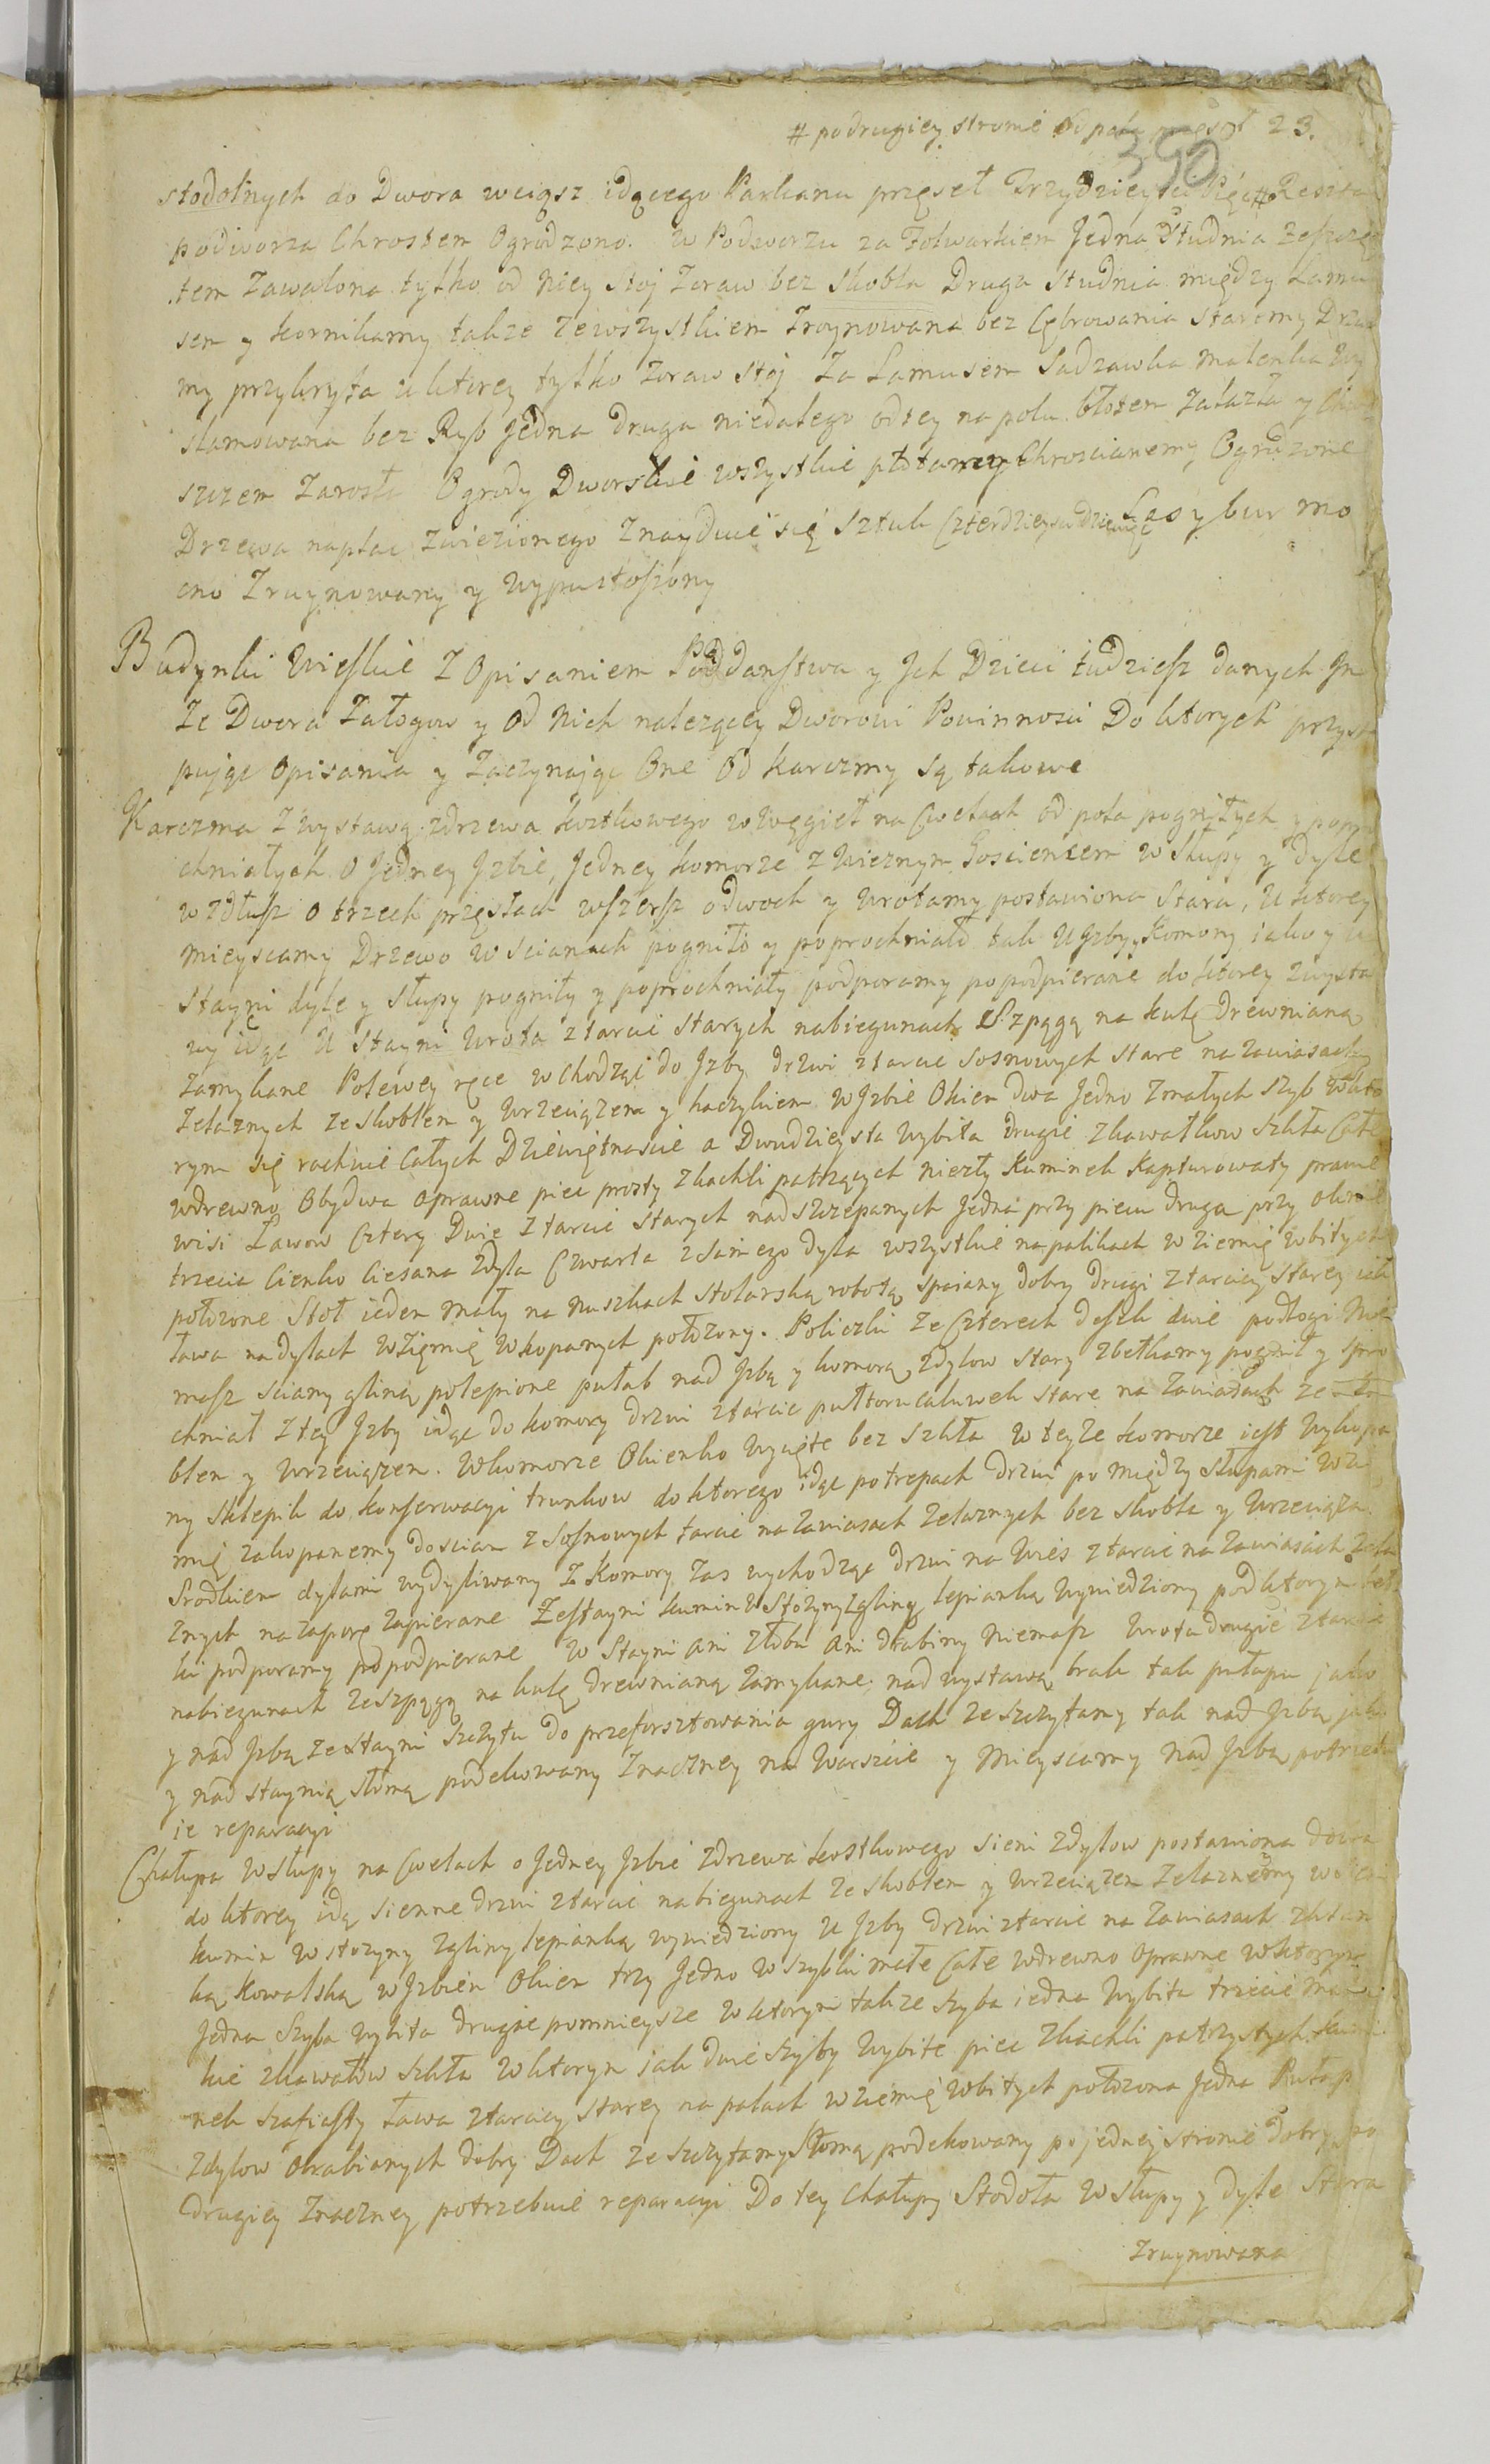 # po drugiey stronie od pola przęseł 23.
390
stodolnych do Dwora wciąsz idącego Parkanu przęseł Trzydzieysci Pięć # Reszta
podworza Chrostem Ogrodzono. W Podworzu za Folwarkiem Jedna Studnia ze szczę
tem Zawalona tylko od niey stoj Zoraw bez skobla Druga studnia między Lamu
sem y kornikamy takze ze wszystkiem Zroynowana bez Cębrowania staremy Drzwia
my przykryta u ktorey tylko zoraw stoj Za Lamusem Sadzawka malenka Wy
slamowana bez Ryb jedna druga niedalego od tey na polu błotem Zalazła y
szczem Zarosła Ogrody Dworskie wszystkie płotamy Chroscianemy Ogrodzone
Drzewa na płac zwiezionego Znayduie się sztuk Czterdzieysci Dziewięć Las y bur mo
cno Zruynowany y Wypustoszony
Budynki Wieskie Z Opisaniem Poddanstwa y Jch Dzieci tudziesz danych Jm
Ze Dwora Załogow y od Nich nalezącey Dworowi Powinnosci Do ktorych przystę
pując Opisania y Zaczynając One Od karczmy są takowe
Karczma Z wystawą z drzewa kostkowego w węgieł na Cwelach od pola pogniłych y popro
chniałych O Jedney Jzbie, Jedney komorze z Wieznym Goscieńcem w słupy y dyle
w zdłusz o trzech przęsłach wszersz o dwoch y wrotamy postawiona Stara, U ktorey
mieyscamy Drzewo w scianach pogniło y poprochniało tak U Jzby, Komory iako y u
Stayni dyle y słupy pogniły y poprochniały podporamy popodpierane do ktorey z wysta
wy idąc U Stayni wrota z tarcic starych na biegunach Szpągą na kulę Drewnianą
Zamykane Po lewey ręce wchodząc do Jzby drzwi z tarcic sosnowych stare na zawiasach
Zelaznych ze skoblem y wrzeciązem y haczykiem w Jzbie Okien dwa Jedno z małych szyb w kto
rym się rachuie Całych Dziewiętnascie a Dwudziesta wybita drugie z kawałkow szkła Całe
w drewno Obydwa oprawne piec prosty z kachli patrzących niezły kuminek kapturowaty prawie
wisi Ławow Cztery Dwie z tarcic starych nadszczepanych Jedna przy piecu druga przy oknie
trzecia Cienko Ciesana z dyla Czwarta z samego dyla wszystkie na palikach w ziemię wbitych
położone Stoł ieden mały na nuszkach stolarską robotą spaiany dobry drugi z tarcicy starey iak
ława na dylach w ziemię wkopanych położony. Policzki ze Czterech desek dwie podłogi Nie
masz sciany gliną polepione pułab nad Jzbą y komorą z dylow stary z belkamy pognił y spro
chniał z tey Jzby idąc do komory drzwi z tarcic pułtoru calowek stare na zawiasach ze sko
blem y wrzeciązem. W komorze Okienko wycięte bez szkła w teyze komorze iest wykopa
ny sklepik do konserwacyi trunkow do ktorego idąc po trepach drzwi pomiędzy słupami w zie
mię zakopanemy do scian z sosnowych tarcic na zawiasach zelaznych bez skobla y wrzeciąza
srodkiem dylami wydyliwany Z Komory zas wychodząc drzwi na Wies z tarcic na zawiasach zela
znych na zaporę zapierane Ze stayni kumin w stożyny z gliną lepianką wywiedziony pod ktorym bel
ki podporamy popodpierane W Stayni ani złobu ani drabiny niemasz wrota drugie z tarcic
na biegunach ze szpągą na kulę drewnianą zamykane, nad wystawą brak tak pułapu jako
y nad Jzbą ze stayni szczytu do przeforsztowania gury Dach ze szczytamy tak nad Jzbą jako
y nad staynią słomą podekowany Znaczney na Warszcie y mieyscamy nad Jzbą potrzebu
ie reparacyi
Chałupa w słupy na Cwelach o Jedney Jzbie z drzewa kostkowego sieni z dylow postawiona dobra
do ktorey idą sienne drzwi z tarcic na biegunach ze skoblem y wrzeciązem zelaznemy w sieni
kumin w stozyny z gliny lepianką wywiedziony u Jzby drzwi z tarcic na zawiasach z klam
ką kowalską w Jzbien Okien trzy Jedno w szybki małe Całe w drewno oprawne w ktorym
Jedna szyba wybita drugie pomnieysze w ktorym takze szyba iedna wybita trzecie malen
kie z kawałow szkła w ktorym jak dwie szyby wybite piec z kachli patrzystych kumi
nek szafiasty Ława z tarcicy starey na palach w ziemię wbitych położona Jedna Pułap
z dylow obrabianych dobry Dach ze szczytamy słomą podekowany po jedney stronie dobry po
drugiey Znaczney potrzebuie reparacyi Do tey Chałupy Stodoła w słupy y dyle Stara
Zruynowana